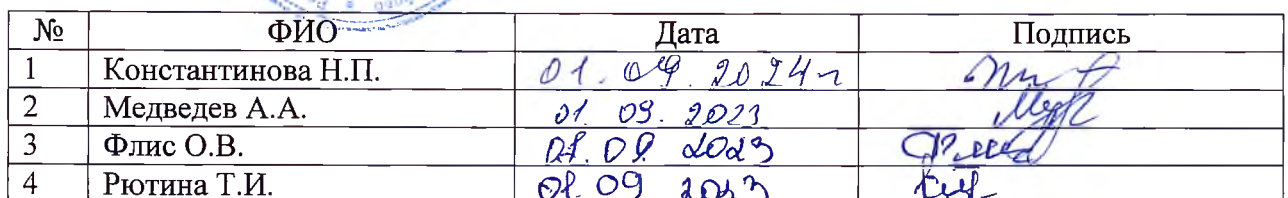 № ФИО Дата Подпись
1 Константинова Н.П. 01.09.2024 г
2 Медведев А.А. 01.09.2023
3 Флис О.В. 01.09.2023
4 Рютина Т.И. 01.09 2023